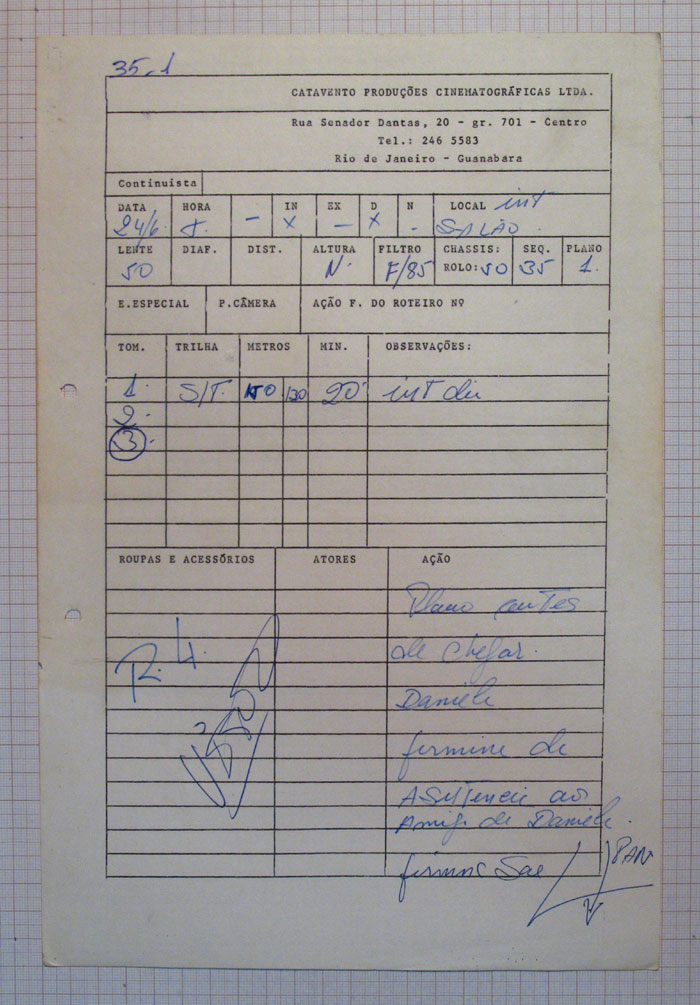 35.1
CATAVENTO PRODUÇÕES CINEMATOGRÁFICAS LTDA.
Rua Senador Dantas, 20 - gr. 701 - Centro
Tel.: 246 5583
Rio de Janeiro - Guanabara
Continuista
DATA HORA - IN EX D N LOCAL int
24/6 X - X - SALÃO
LENTE DIAF. DIST. ALTURA FILTRO CHASSIS: SEQ. PLANO
50 N. F/85 ROLO: 50 35 1.
E.ESPECIAL P.CÂMERA AÇÃO F. DO ROTEIRO Nº
TOM. TRILHA METROS MIN. OBSERVAÇÕES:
1. S/T. 120 20 int dia
2.
3.
ROUPAS E ACESSÓRIOS ATORES AÇÃO
Plano antes
de chegar.
R.4. Daniele
firmine de
Asistencie ao
Amigo de Daniele.
firmine Sae PAN